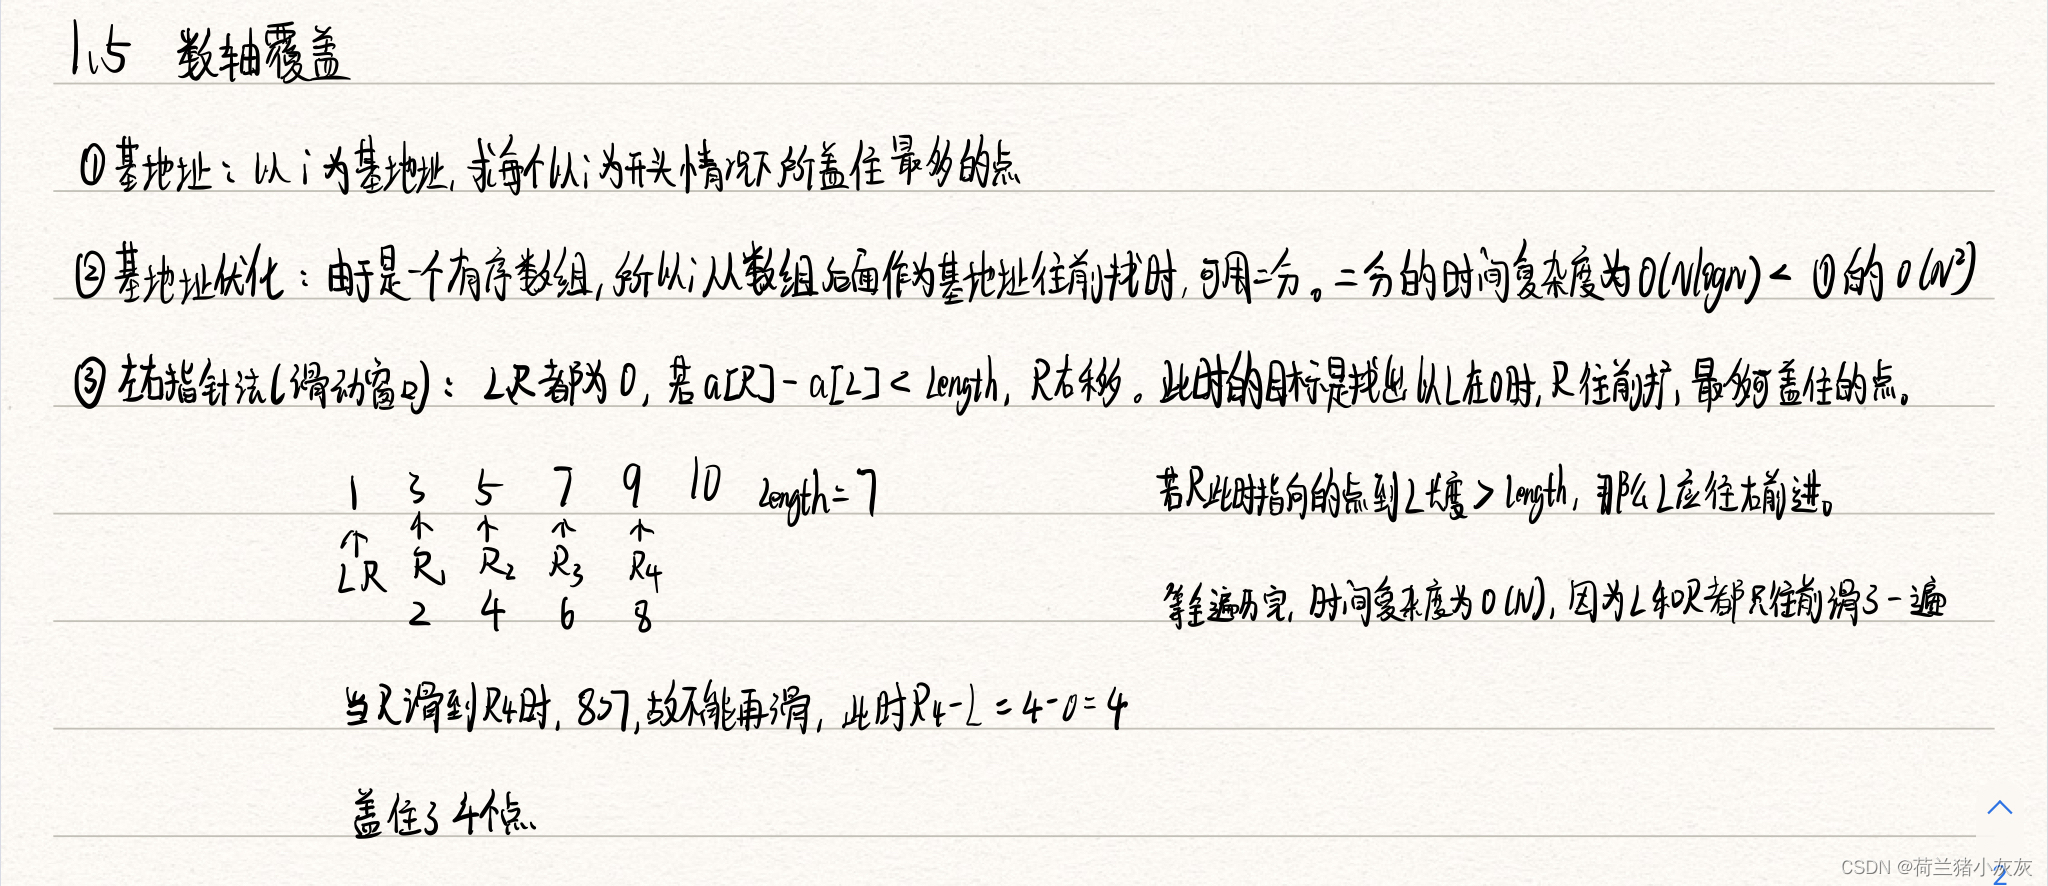 1.5 数轴覆盖
①基地址：以i为基地址,求每个以i为开头情况下所盖住最多的点
②基地址优化：由于是一个有序数组,所以i从数组后面作为基地址往前找时,可用二分。二分的时间复杂度为O(NlogN) < ①的O(N²)
③左右指针法(滑动窗口)：LR都为0,若a[R]-a[L]< Length, R右移。此时的目标是找出以L在0时,R往前扩,最多可盖住的点。
1 3 5 7 9 10 Length=7
若R此时指向的点到L长度 > Length, 那么L应往右前进。
↑ ↑ ↑ ↑ ↑
LR R₁ R₂ R₃ R₄
2 4 6 8
等全遍历完,时间复杂度为O(N),因为L和R都只往前滑了一遍
当R滑到R₄时,8>7,故不能再滑,此时R₄-L=4-0=4
盖住了4个点
CSDN @荷兰猪小灰灰
2